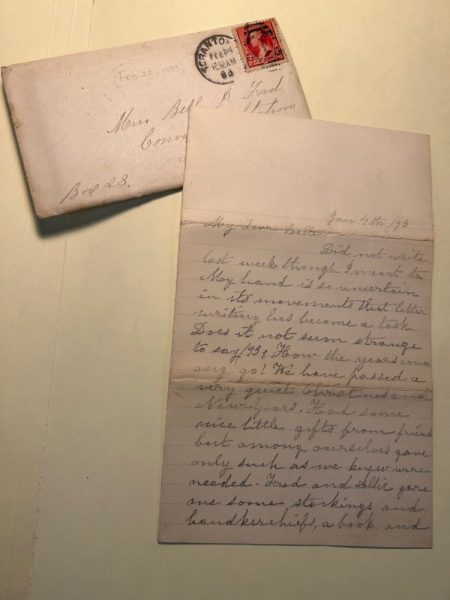 SCRANTON
FEB 24
10 30 AM
93
Miss Bell
Station
Box 23.
Jan 4th/93
My dear Belle
Did not write
last week though I meant to.
My hand is so uncertain
in its movements that letter
writing has become a task.
Does it not seem strange
to say/93? How the years come
and go! We have passed a
very quiet Christmas and
New Years. Had some
nice little gifts from friends
but among ourselves gave
only such as we knew were
needed. Fred and Allie gave
me some stockings and
handkerchiefs, a book and